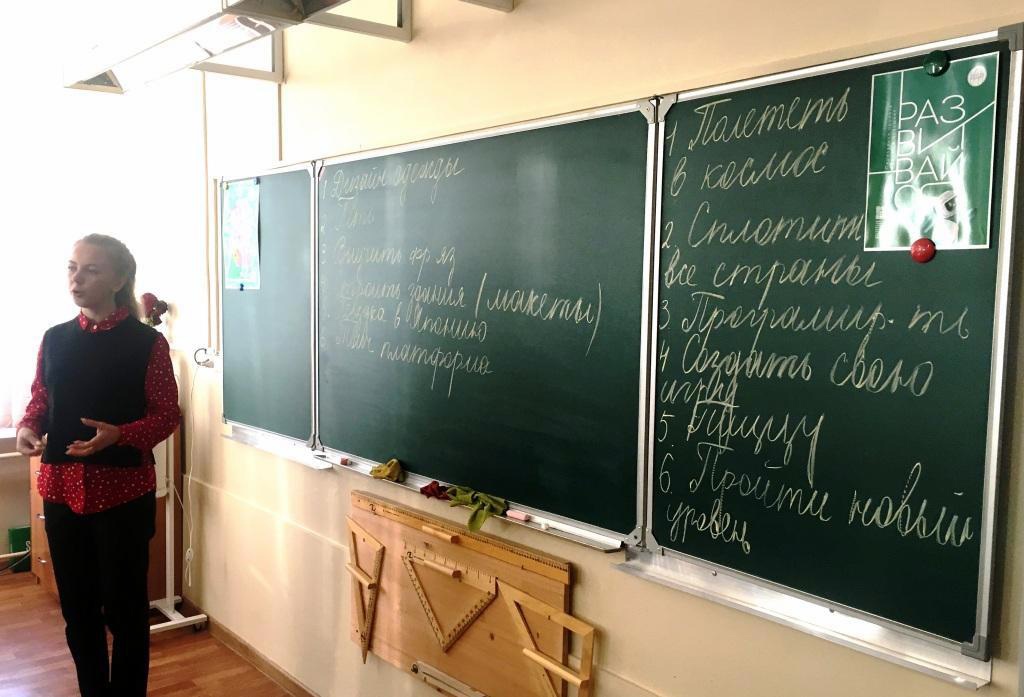 1 Дизайн одежды
2 Петь
3 Выучить фр яз
строить здания (макеты)
в Японию
платформа
1 Полететь
в космос
2. Сплотить
все страны
3. Програмир-ть
4 Создать свою
игру
5. Пиццу
6. Пройти новый
уровень
РАЗ
ВИ
ВАЙ